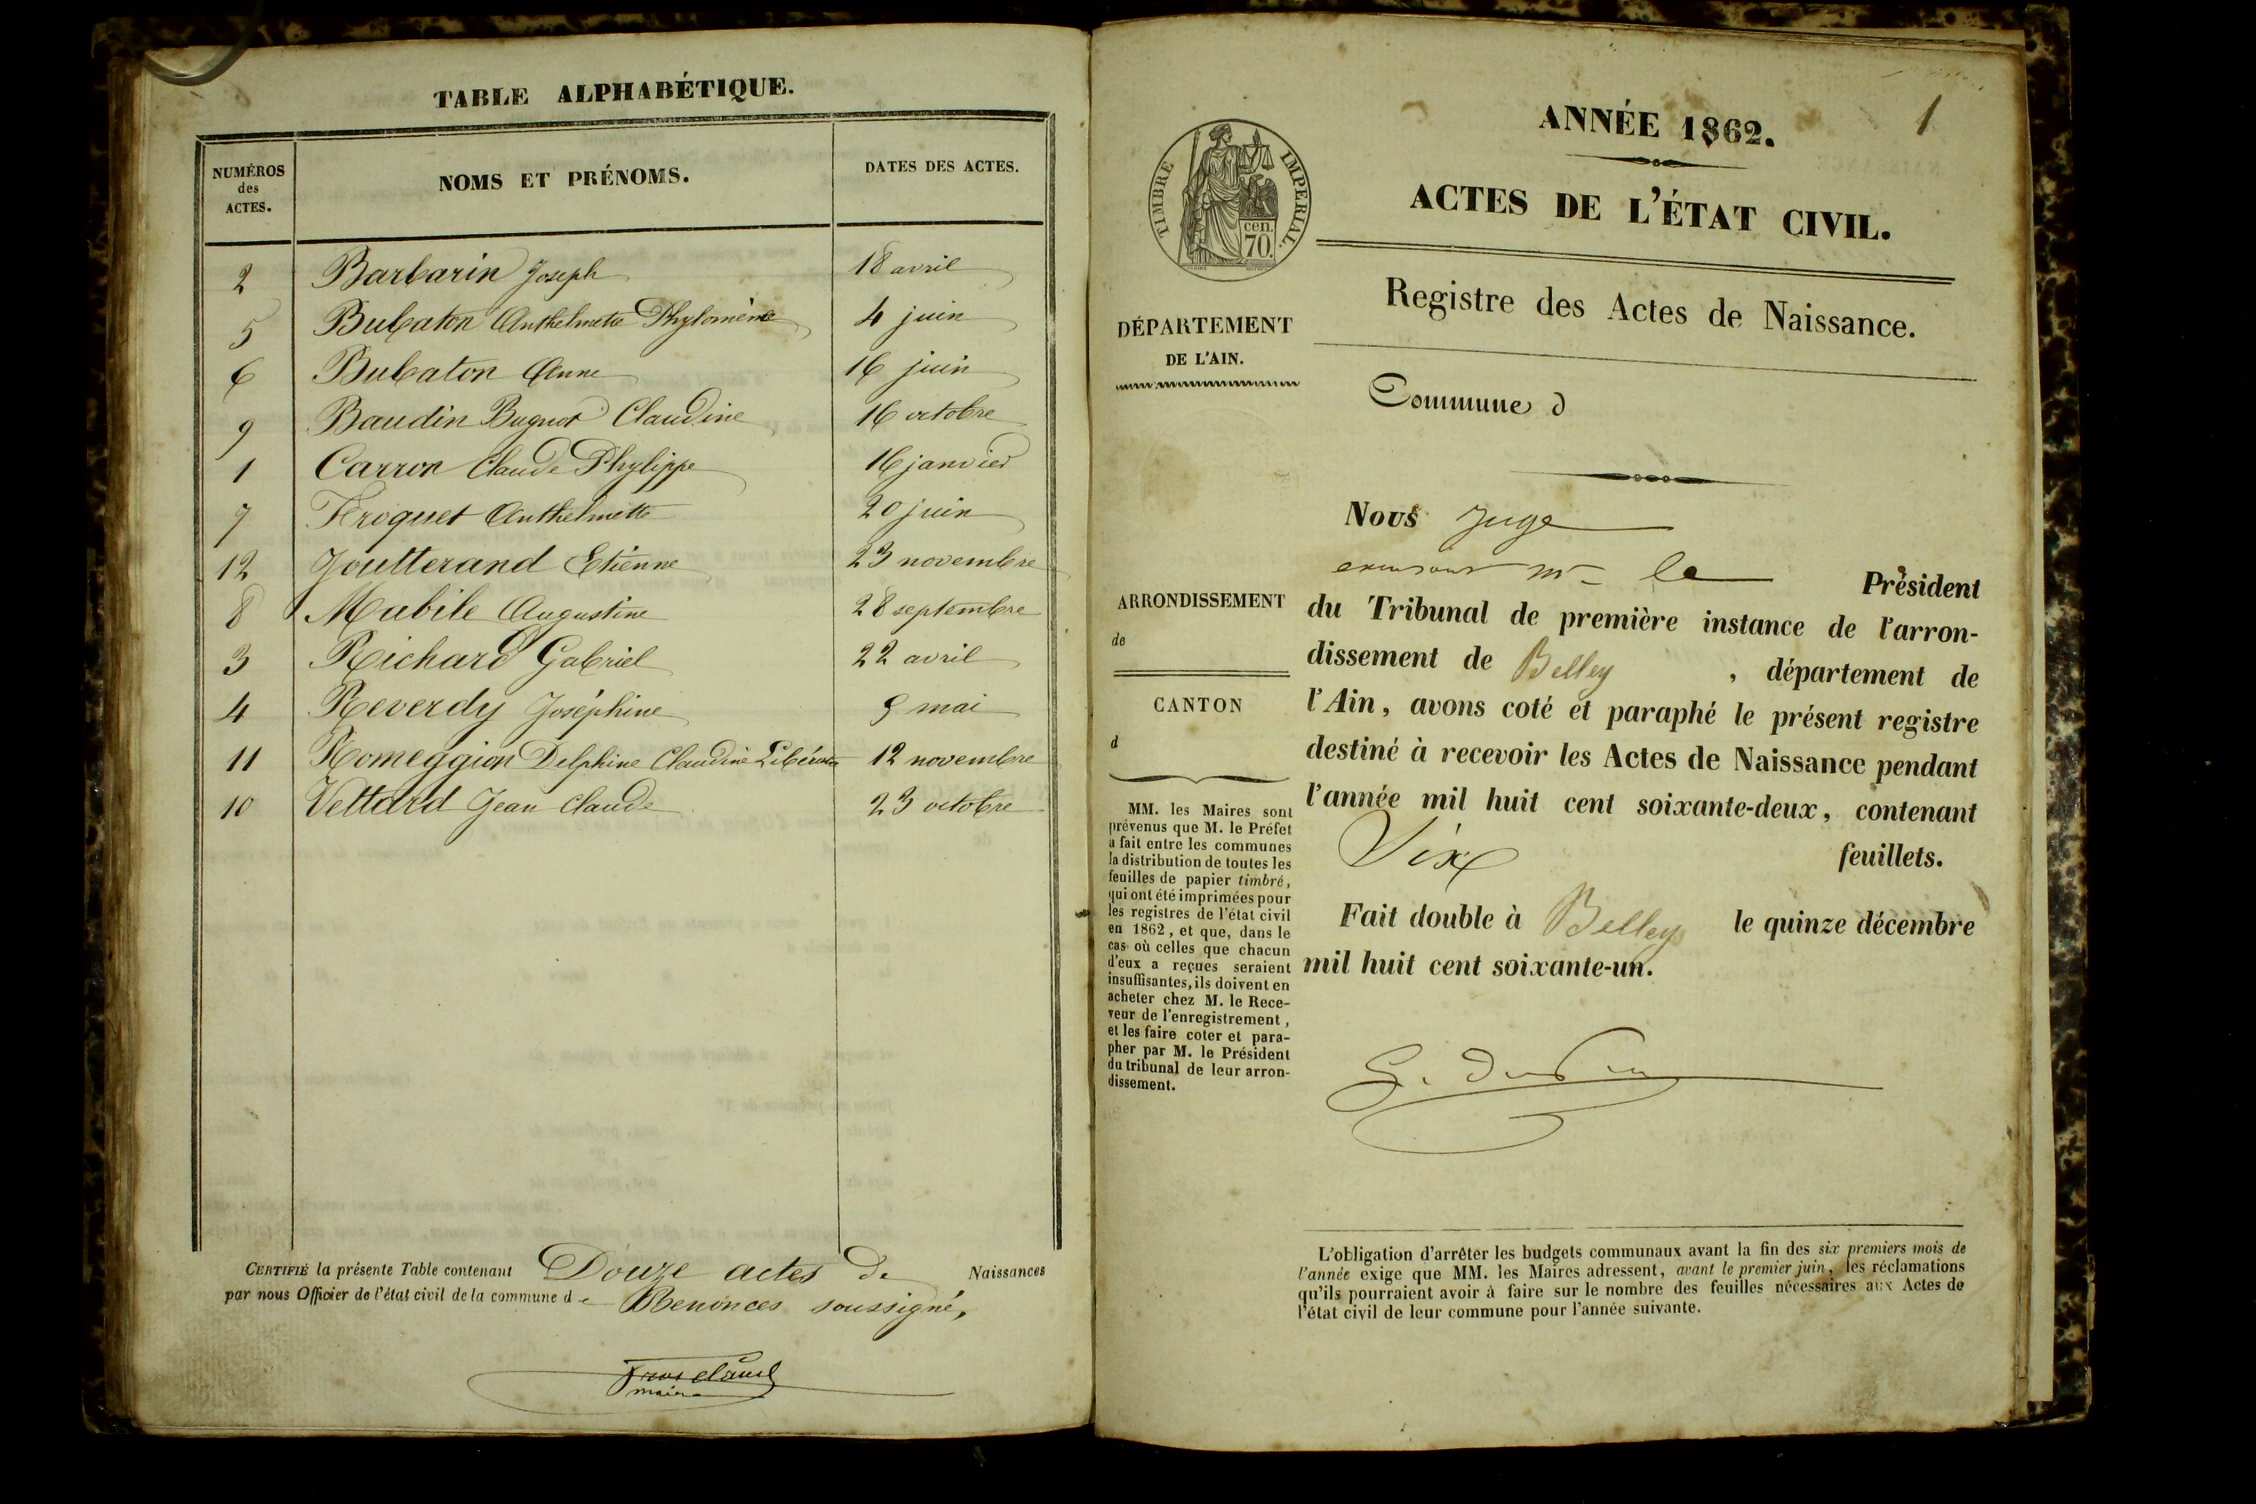 TABLE ALPHABÉTIQUE.
NUMÉROS
des
ACTES.
NOMS ET PRÉNOMS.
DATES DES ACTES.
2 Barbarin Joseph 18 avril
5 Bubaton Anthelmette Phyloméne 4 juin
6 Bubaton Anne 16 juin
9 Baudin Bugnot Claudine 16 octobre
1 Carron Claude Phylippe 16 janvier
7 Froquet Anthelmette 20 juin
12 Joutterand Etienne 23 novembre
8 Mabile Augustine 28 septembre
3 Richard Gabriel 22 avril
4 Reverdy Joséphine 9 mai
11 Romeggion Delphine Claudine 12 novembre
10 Vettard Jean Claude 23 octobre
CERTIFIÉ la présente Table contenant Douze actes de Naissances
par nous Officier de l'état civil de la commune de Benonces soussigné,
maire
1
ANNÉE 1862.
ACTES DE L'ÉTAT CIVIL.
TIMBRE IMPERIAL.
cen.
70.
Registre des Actes de Naissance.
DÉPARTEMENT
DE L'AIN.
Commune d
Nous Juge
le Président
du Tribunal de première instance de l'arron-
dissement de Belley , département de
l'Ain, avons coté et paraphé le présent registre
destiné à recevoir les Actes de Naissance pendant
l'année mil huit cent soixante-deux, contenant
Six feuillets.
Fait double à Belley le quinze décembre
mil huit cent soixante-un.
ARRONDISSEMENT
de
CANTON
d
MM. les Maires sont
prévenus que M. le Préfet
a fait entre les communes
la distribution de toutes les
feuilles de papier timbré,
qui ont été imprimées pour
les registres de l'état civil
en 1862, et que, dans le
cas où celles que chacun
d'eux a reçues seraient
insuffisantes, ils doivent en
acheter chez M. le Rece-
veur de l'enregistrement,
et les faire coter et para-
pher par M. le Président
du tribunal de leur arron-
dissement.
L'obligation d'arrêter les budgets communaux avant la fin des six premiers mois de
l'année exige que MM. les Maires adressent, avant le premier juin, les réclamations
qu'ils pourraient avoir à faire sur le nombre des feuilles nécessaires aux Actes de
l'état civil de leur commune pour l'année suivante.